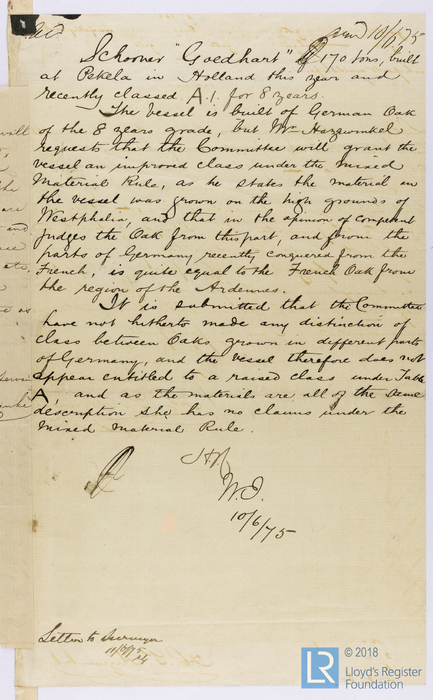 10/6/75
Schooner "Goedhart" of 170 tons, built
at Pekela in Holland this year and
recently classed A.1. for 8 years.
The Vessel is built of German Oak
of the 8 years grade, but Mr Hazewinkel
requests that the Committee will grant the
vessel an improved class under the mixed
Material Rule, as he states the material in
the vessel was grown on the high grounds of
Westphalia, and that in the opinion of competent
judges the Oak from this part, and from the
parts of Germany recently conquered from the
French, is quite equal to the French Oak from
the region of the Ardennes.
It is submitted that the Committee
have not hitherto made any distinction of
class between Oaks grown in different parts
of Germany, and the vessel therefore does not
appear entitled to a raised class under Table
A, and as the materials are all of the same
description she has no claims under the
mixed material Rule.
10/6/75
Letter to Surveyor
11/6/75
© 2018
LR
Lloyd's Register
Foundation